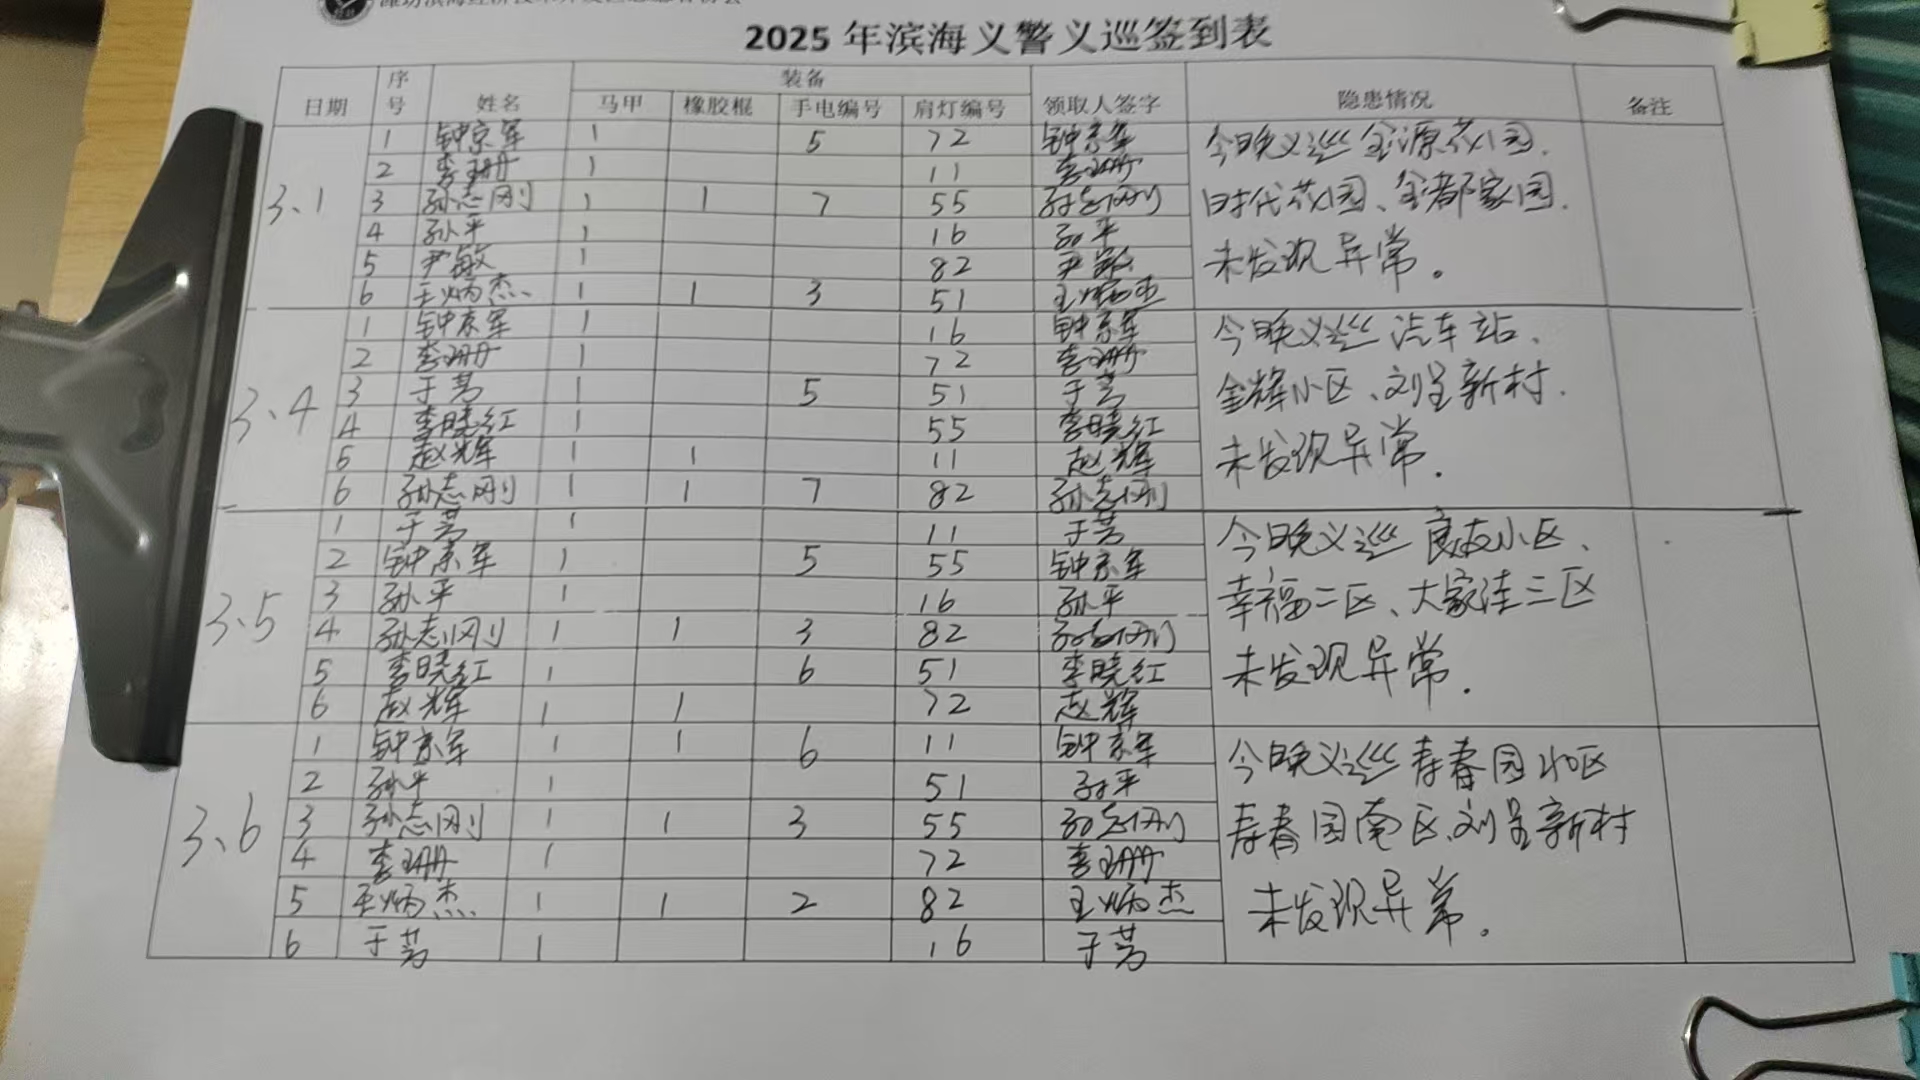 2025年滨海义警义巡签到表
日期 序号 姓名 装备 领取人签字 隐患情况 备注
马甲 橡胶棍 手电编号 肩灯编号
3、1
1 钟京军 1 5 72 钟京军
2 李珊珊 1 11 李珊珊
3 孙志刚 1 1 7 55 孙志刚
4 孙平 1 16 孙平
5 尹敏 1 82 尹敏
6 王炳杰 1 1 3 51 王炳杰
今晚义巡金源花园、
时代花园、金都家园.
未发现异常。
3、4
1 钟京军 1 16 钟京军
2 李珊珊 1 72 李珊珊
3 于芳 1 5 51 于芳
4 李晓红 1 55 李晓红
5 赵辉 1 1 11 赵辉
6 孙志刚 1 1 7 82 孙志刚
今晚义巡汽车站、
金辉小区、刘呈新村.
未发现异常.
3、5
1 于芳 1 11 于芳
2 钟京军 1 5 55 钟京军
3 孙平 1 16 孙平
4 孙志刚 1 1 3 82 孙志刚
5 李晓红 1 6 51 李晓红
6 赵辉 1 1 72 赵辉
今晚义巡良友小区、
幸福二区、大家洼三区
未发现异常.
3、6
1 钟京军 1 1 6 11 钟京军
2 孙平 1 51 孙平
3 孙志刚 1 1 3 55 孙志刚
4 李珊珊 1 72 李珊珊
5 王炳杰 1 1 2 82 王炳杰
6 于芳 1 16 于芳
今晚义巡寿春园北区
寿春园南区、刘呈新村
未发现异常。